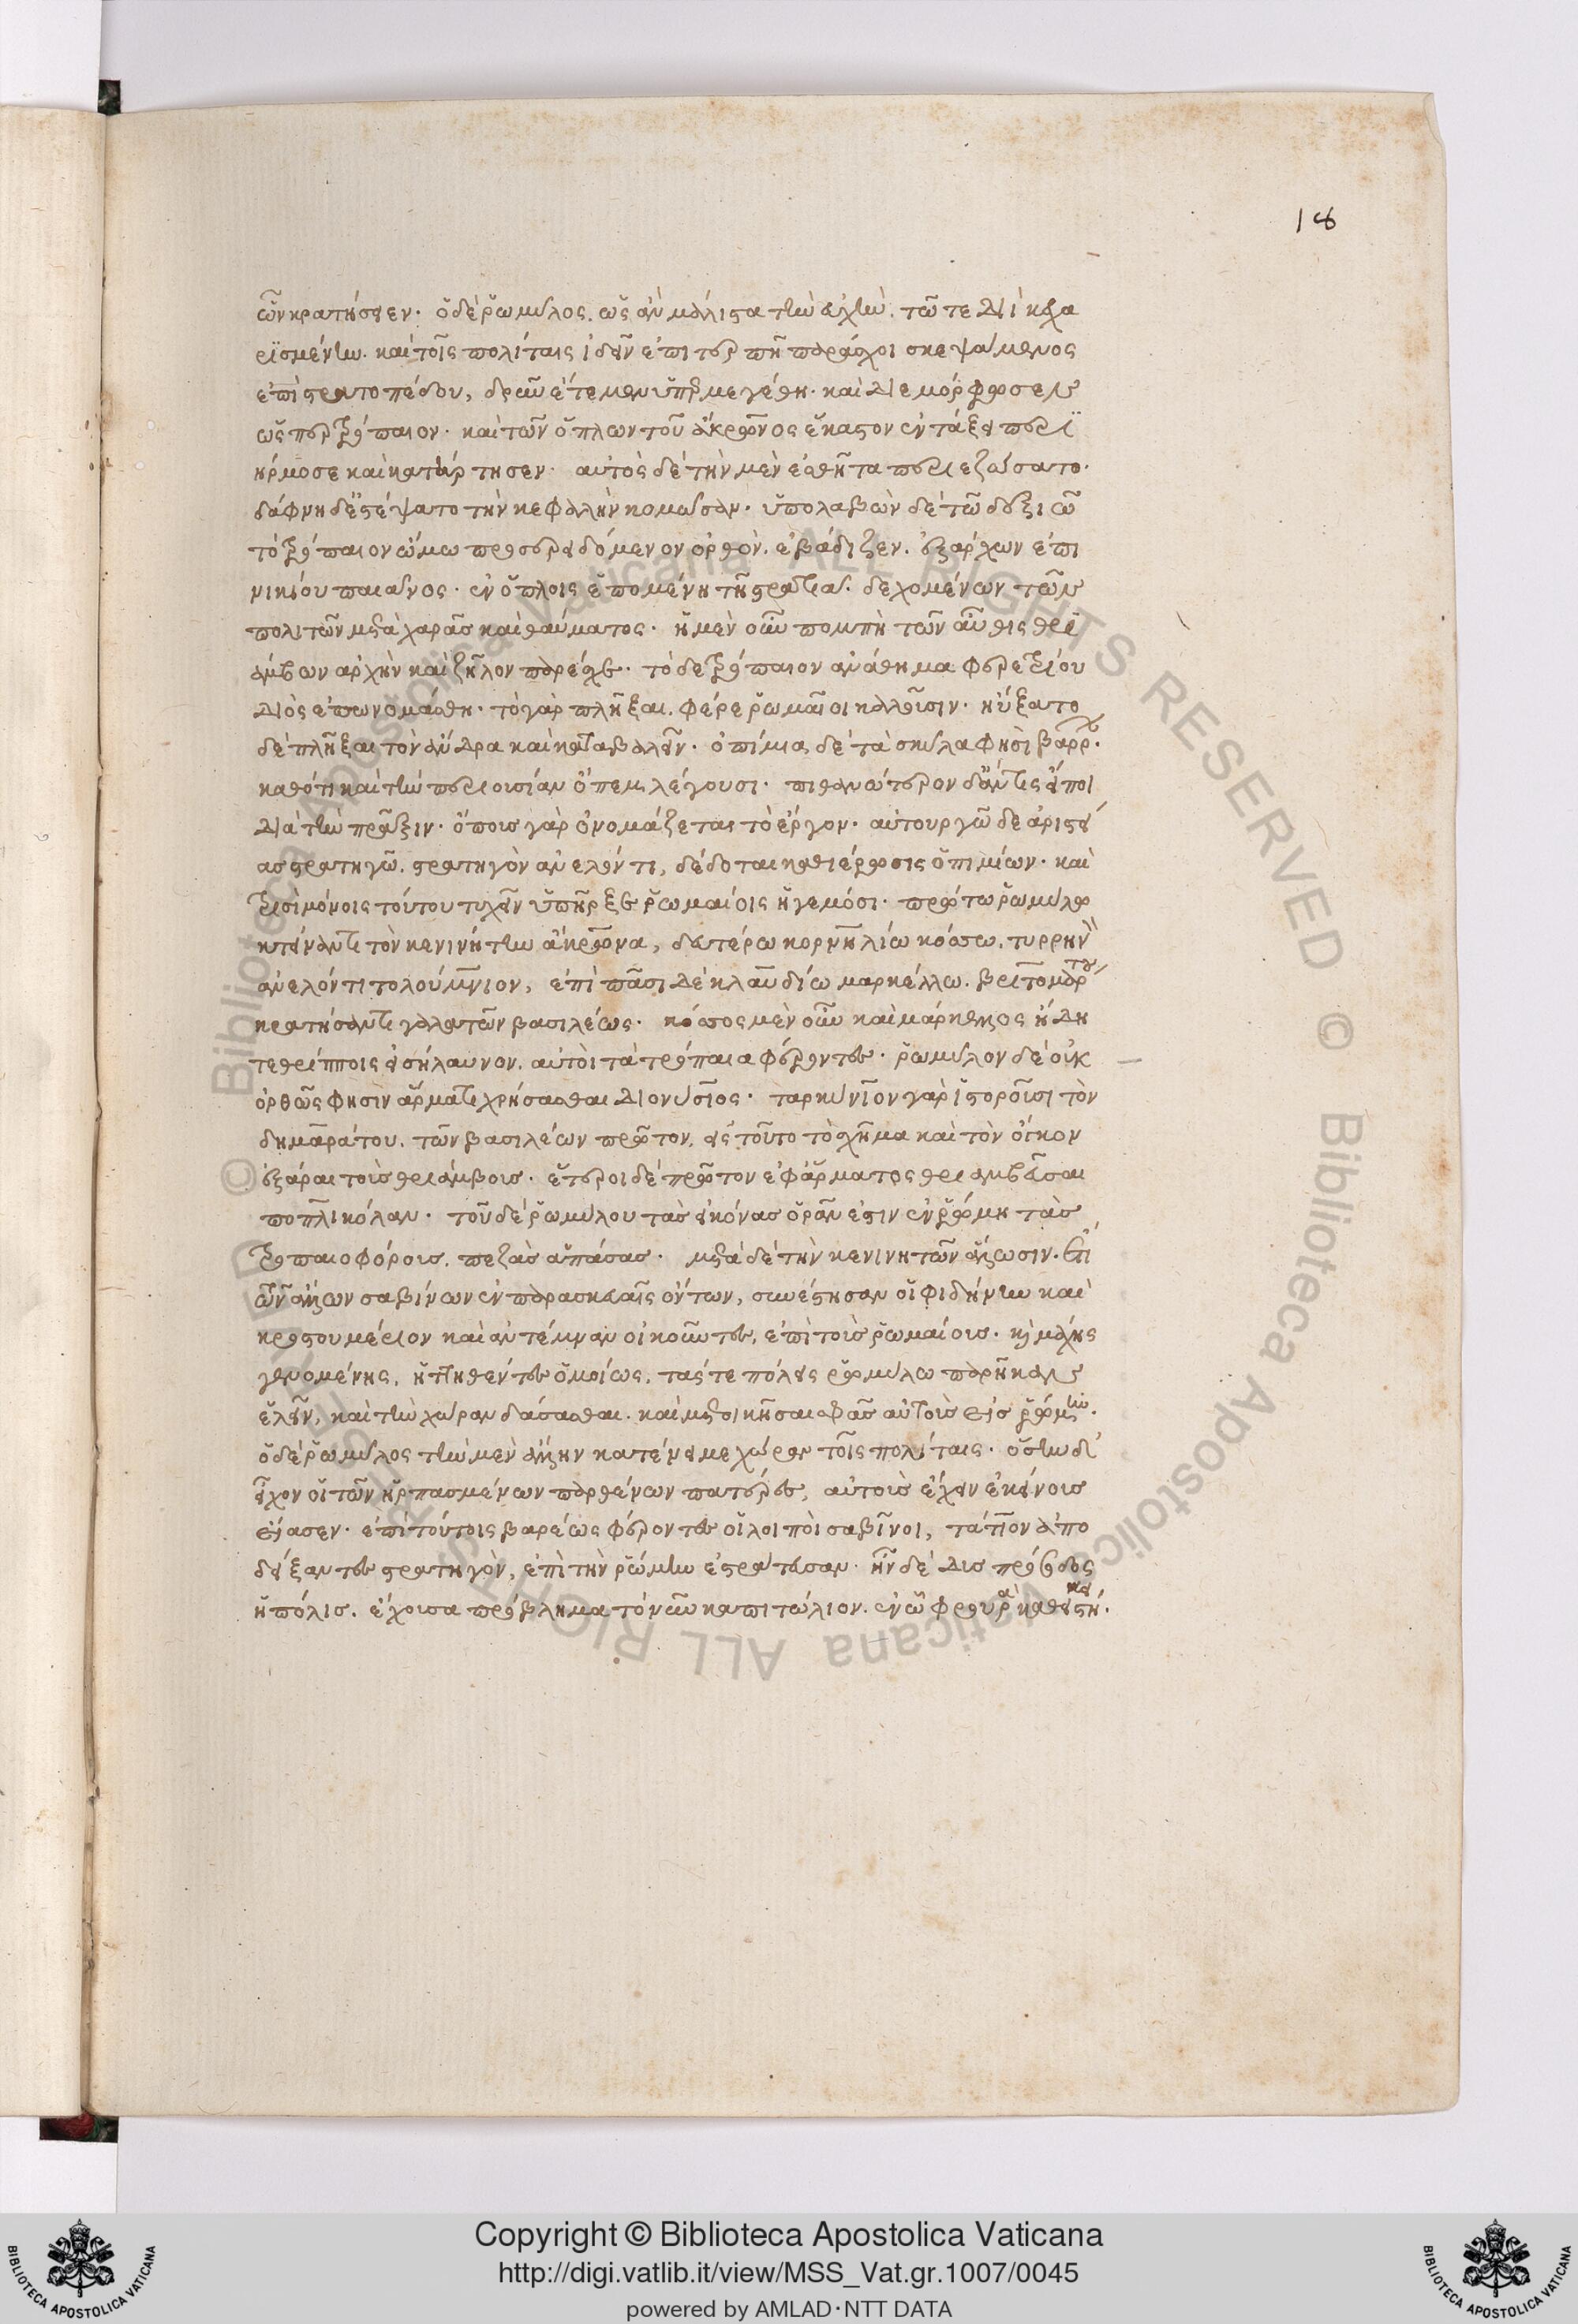 18
ὧν κρατήσειεν. ὁ δὲ ῥωμύλος. ὡς ἂν μάλιστα τὴν εὐχὴν. τῶ τε διῒ κεχα
ρισμένην. καὶ τοῖς πολίταις ἰδεῖν ἐπιτερπῆ παράσχοι σκεψάμενος
ἐπὶ στρατοπέδου, δρῦν ἔτεμεν ὑπερμεγέθη. καὶ διεμόρφωσεν
ὥσπερ τρόπαιον. καὶ τῶν ὅπλων τοῦ ἄκρωνος ἕκαστον ἐν τάξει περι
ήρμοσε καὶ κατήρτησεν. αὐτὸς δὲ τὴν μὲν ἐσθῆτα περιεζώσατο.
δάφνη δὲ ἐστέψατο τὴν κεφαλὴν κομῶσαν. ὑπολαβὼν δὲ τῶ δεξιῶ
τὸ τρόπαιον ὤμω προσερειδόμενον ὀρθὸν. ἐβάδιζεν. ἐξάρχων ἐπι
νικίου παιᾶνος. ἐν ὅπλοις ἑπομένη τῆ στρατιᾶ. δεχομένων τῶν
πολιτῶν μετὰ χαρᾶς καὶ θαύματος. ἡ μὲν οὖν πομπὴ τῶν αὖθις θρι
άμβων ἀρχὴν καὶ ζῆλον παρέσχε. τὸ δὲ τρόπαιον ἀνάθημα φερετρίου
διὸς ἐπωνομάσθη. τὸ γὰρ πλῆξαι. φέρε ῥωμαῖοι καλοῦσιν. ηὔξατο
δὲ πλῆξαι τὸν ἄνδρα καὶ καταβαλεῖν. ὀπίμια δὲ τὰ σκύλα φησὶ βάρρ.
καθότι καὶ τὴν περιουσίαν ὄπεμ λέγουσι. πιθανώτερον δ' ἄν τις εἴποι
διὰ τὴν πρᾶξιν. ὄπους γὰρ ὀνομάζεται τὸ ἔργον. αὐτουργῶ δὲ ἀριστεί
ας στρατηγῶ. στρατηγὸν ἀνελόντι, δέδοται καθιέρωσις ὀπιμίων. καὶ
τρισὶ μόνοις τούτου τυχεῖν ὑπῆρξε ῥωμαίοις ἡγεμόσι. πρώτω ῥωμύλω
κτείναντι τὸν κενινήτην ἄκρωνα, δευτέρω κορνηλίω κόσσω. τυρρην
ἀνελόντι τολούμνιον, ἐπὶ πᾶσι δὲ κλαυδίω μαρκέλλω. βριτομάρτου
κρατήσαντι γαλατῶν βασιλέως. κόσσος μὲν οὖν καὶ μάρκελλος ἤδη
τεθρίπποις εἰσήλαυνον. αὐτοὶ τὰ τρόπαια φέροντες. ῥωμύλον δὲ οὐκ
ὀρθῶς φησὶν ἅρματι χρήσασθαι διονύσιος. ταρκύνιον γὰρ ἱστοροῦσι τὸν
δημαράτου. τῶν βασιλέων πρῶτον. εἰς τοῦτο τὸ σχῆμα καὶ τὸν ὄγκον
ἐξάραι τοὺς θριάμβους. ἕτεροι δὲ πρῶτον ἐφ' ἅρματος θριαμβεῦσαι
ποπλικόλαν. τοῦ δὲ ῥωμύλου τὰς εἰκόνας ὁρᾶν ἐστιν ἐν ῥώμη τὰς
τροπαιοφόρους. πεζὰς ἁπάσας. μετὰ δὲ τὴν κενινητῶν ἅλωσιν. ἔτι
τῶν ἄλλων σαβίνων ἐν παρασκευαῖς ὄντων, συνέστησαν οἱ φιδήνην καὶ
κρουστουμέριον καὶ ἀντέμναν οἰκοῦντες, ἐπὶ τοὺς ῥωμαίους. καὶ μάχης
γενομένης, ἡττηθέντες ὁμοίως. τάς τε πόλεις ῥωμύλω παρῆκαν
ἑλεῖν, καὶ τὴν χώραν δάσασθαι. καὶ μετοικῆσαι σφᾶς αὐτοὺς εἰς ῥώμην.
ὁ δὲ ῥωμύλος τὴν μὲν ἄλλην κατένειμε χώραν τοῖς πολίταις. ὅσην δὲ
εἶχον οἱ τῶν ἡρπασμένων παρθένων πατέρες, αὐτοὺς ἔχειν ἐκείνους
εἴασεν. ἐπὶ τούτοις βαρέως φέροντες οἱ λοιποὶ σαβῖνοι, τάτιον ἀπο
δείξαντες στρατηγὸν, ἐπὶ τὴν ῥώμην ἐστράτευσαν. ἦν δὲ δυσπρόσοδος
ἡ πόλις. ἔχουσα πρόβλημα τὸ νῦν καπιτώλιον. ἐν ὧ φρουρὰ καθειστήκει.
© Biblioteca Apostolica Vaticana ALL RIGHTS RESERVED
Copyright © Biblioteca Apostolica Vaticana
http://digi.vatlib.it/view/MSS_Vat.gr.1007/0045
powered by AMLAD·NTT DATA
BIBLIOTECA APOSTOLICA VATICANA
BIBLIOTECA APOSTOLICA VATICANA